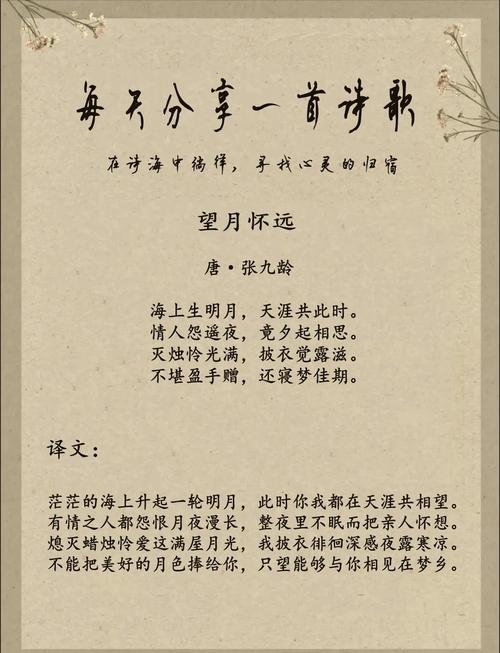 每天分享一首诗歌
在诗海中徜徉，寻找心灵的归宿
望月怀远
唐·张九龄
海上生明月，天涯共此时。
情人怨遥夜，竟夕起相思。
灭烛怜光满，披衣觉露滋。
不堪盈手赠，还寝梦佳期。
译文：
茫茫的海上升起一轮明月，此时你我都在天涯共相望。
有情之人都怨恨月夜漫长，整夜里不眠而把亲人怀想。
熄灭蜡烛怜爱这满屋月光，我披衣徘徊深感夜露寒凉。
不能把美好的月色捧给你，只望能够与你相见在梦乡。